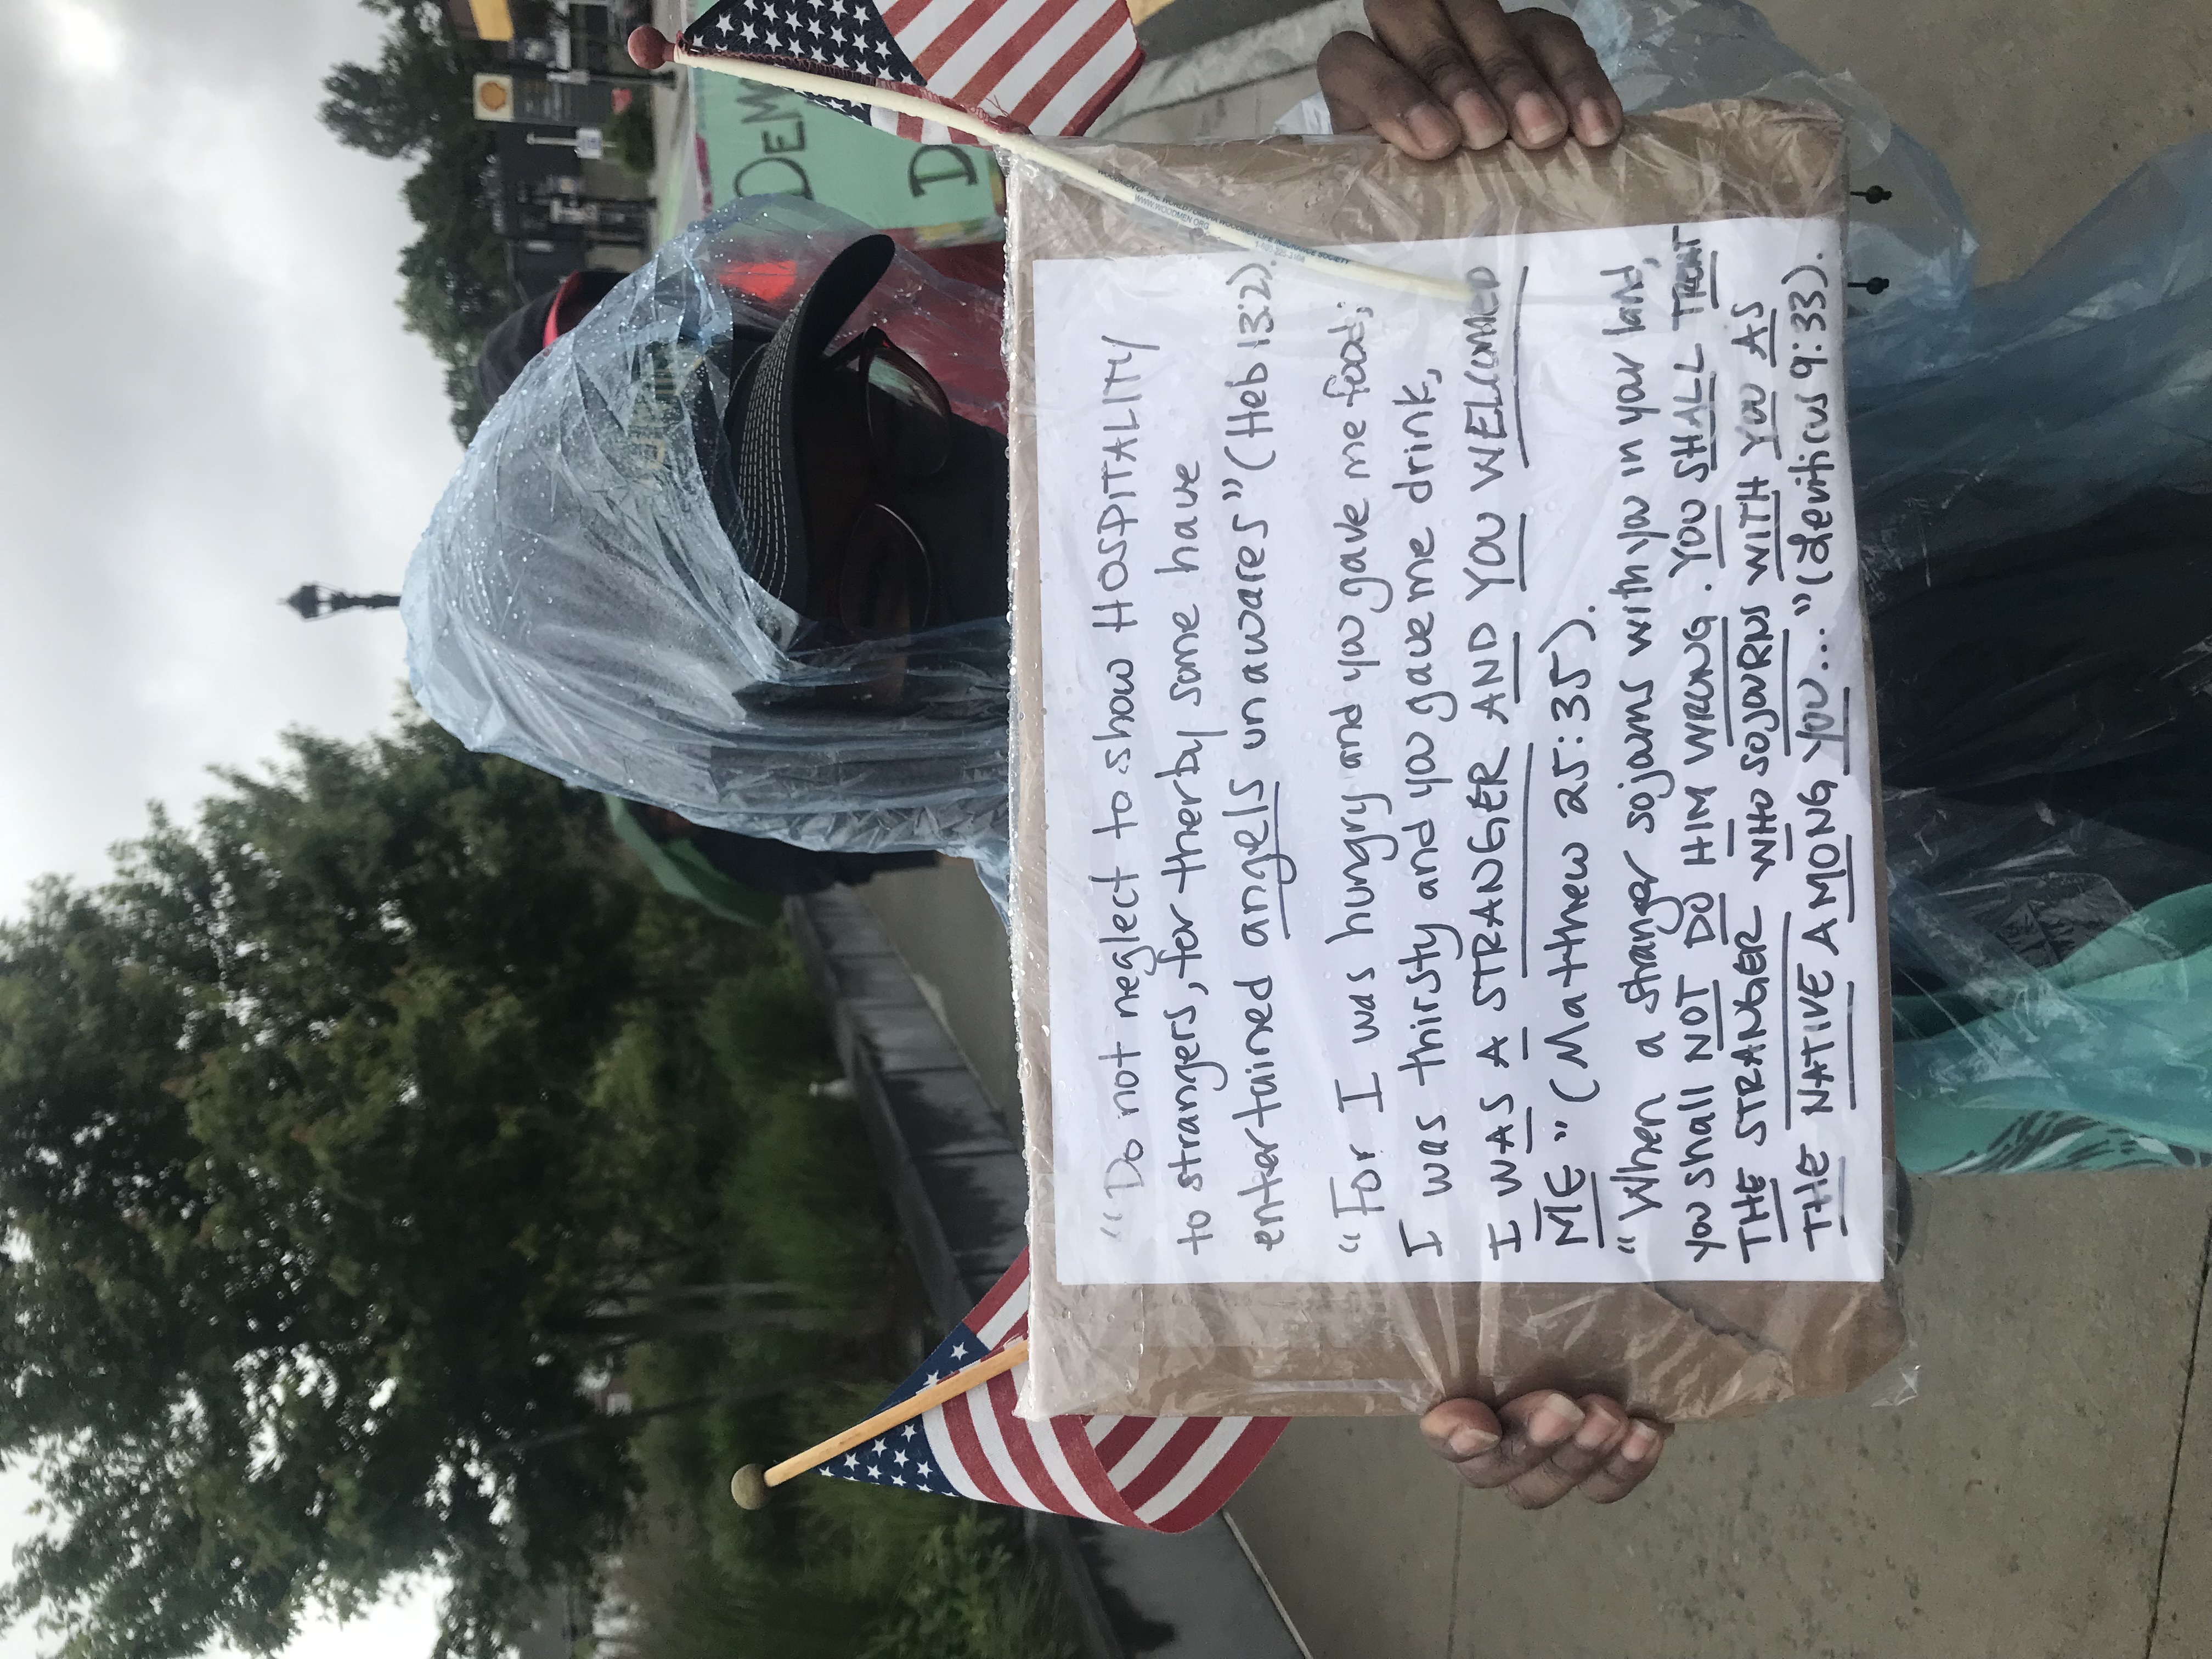 "Do not neglect to show HOSPITALITY
to strangers, for therby some have
entertained angels unawares" (Heb 13:2).
"For I was hungry and you gave me food;
I was thirsty and you gave me drink,
I WAS A STRANGER AND YOU WELCOMED
ME" (Matthew 25:35).
"When a stranger sojourns with you in your land,
you shall NOT DO HIM WRONG. YOU SHALL TREAT
THE STRANGER WHO SOJOURNS WITH YOU AS
THE NATIVE AMONG YOU..." (Leviticus 9:33).
DEM
D
WOODMEN OF THE WORLD
WWW.WOODMEN.ORG
INSURANCE SOCIETY